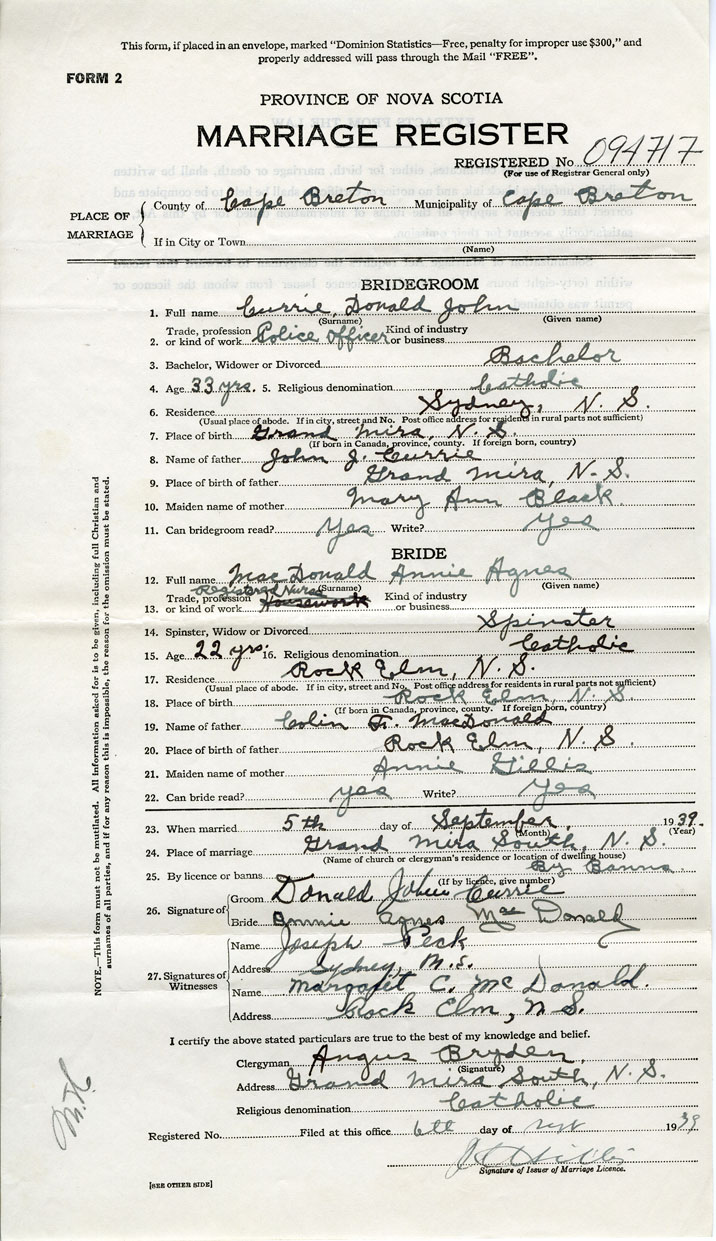 This form, if placed in an envelope, marked "Dominion Statistics—Free, penalty for improper use $300," and
properly addressed will pass through the Mail "FREE".
FORM 2
PROVINCE OF NOVA SCOTIA
MARRIAGE REGISTER
REGISTERED No 094717
(For use of Registrar General only)
PLACE OF MARRIAGE
County of Cape Breton Municipality of Cape Breton
If in City or Town
(Name)
BRIDEGROOM
1. Full name Currie, Donald John
(Surname) (Given name)
2. Trade, profession or kind of work Police Officer Kind of industry or business
3. Bachelor, Widower or Divorced Bachelor
4. Age 33 yrs. 5. Religious denomination Catholic
6. Residence Sydney, N. S.
(Usual place of abode. If in city, street and No. Post office address for residents in rural parts not sufficient)
7. Place of birth Grand Mira, N. S.
(If born in Canada, province, county. If foreign born, country)
8. Name of father John J. Currie
9. Place of birth of father Grand Mira, N. S.
10. Maiden name of mother Mary Ann Black
11. Can bridegroom read? Yes Write? Yes
BRIDE
12. Full name MacDonald Annie Agnes
(Surname) (Given name)
Registered Nurse
13. Trade, profession or kind of work Housework Kind of industry or business
14. Spinster, Widow or Divorced Spinster
15. Age 22 yrs. 16. Religious denomination Catholic
17. Residence Rock Elm, N. S.
(Usual place of abode. If in city, street and No. Post office address for residents in rural parts not sufficient)
18. Place of birth Rock Elm, N. S.
(If born in Canada, province, county. If foreign born, country)
19. Name of father Colin F. MacDonald
20. Place of birth of father Rock Elm, N. S.
21. Maiden name of mother Annie Gillis
22. Can bride read? yes Write? Yes
23. When married 5th day of September, 1939.
(Month) (Year)
24. Place of marriage Grand Mira South, N. S.
(Name of church or clergyman's residence or location of dwelling house)
25. By licence or banns By Banns
(If by licence, give number)
26. Signature of
Groom Donald John Currie
Bride Annie Agnes MacDonald
27. Signatures of Witnesses
Name Joseph Peck
Address Sydney, N.S.
Name Margaret C. McDonald.
Address Rock Elm, N S.
I certify the above stated particulars are true to the best of my knowledge and belief.
Clergyman Angus Bryden,
(Signature)
Address Grand Mira South, N. S.
Religious denomination Catholic
Registered No. Filed at this office 6th day of Sept 1939
Signature of Issuer of Marriage Licence.
[SEE OTHER SIDE]
NOTE.—This form must not be mutilated. All information asked for is to be given, including full Christian and
surnames of all parties, and if for any reason this is impossible, the reason for the omission must be stated.